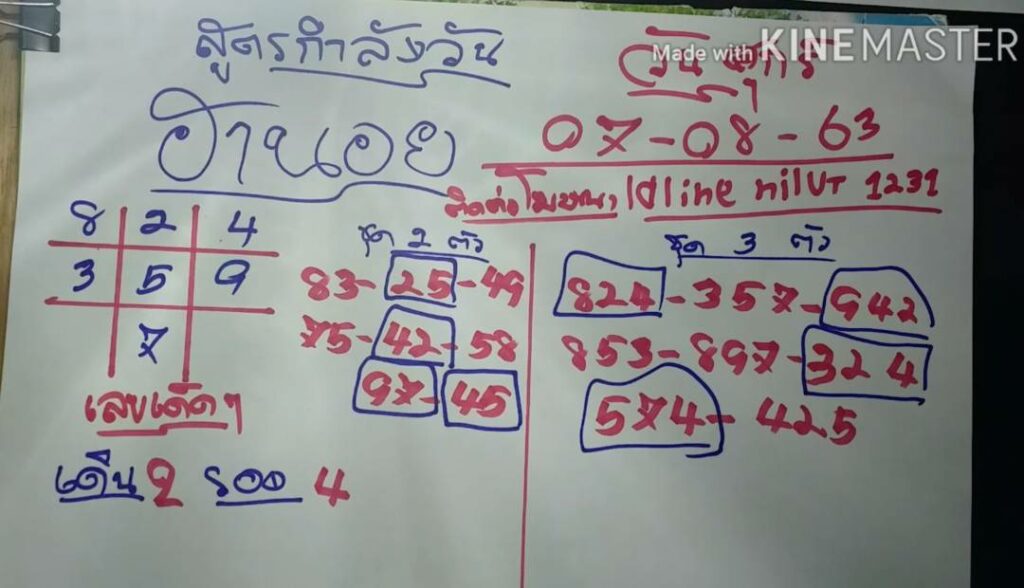 สูตรกำลังวัน
วันศุกร์
Made with KINEMASTER
ฮานอย
07-08-63
ติดต่อโฆษณา Idline nilUT 1231
8 2 4
3 5 9
7
เลขเด็ดๆ
เดิน 2 รอง 4
ชุด 2 ตัว
83-25-49
75-42-58
97-45
ชุด 3 ตัว
824-357-942
853-897-324
574-425